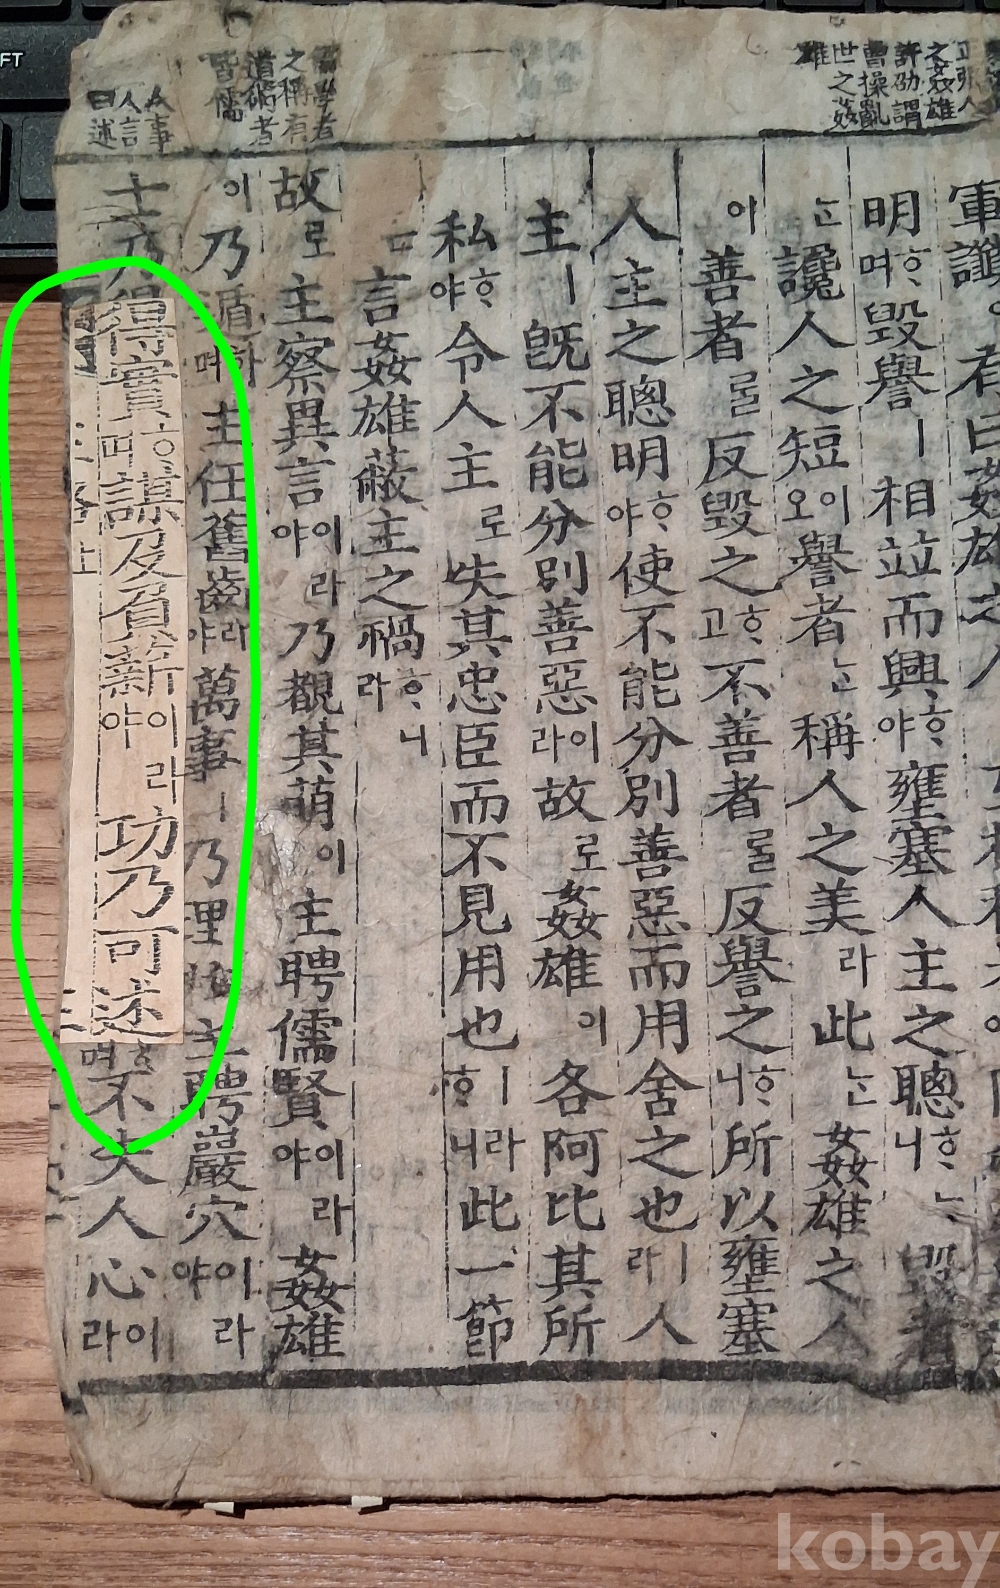 之姦雄
許劭謂
曹操亂
世之姦
雄
儒學者
之稱有
道術者
皆儒
人事
人言
曰述
軍讖 有曰姦雄之人
明ᄒᆞ며毁譽ㅣ相竝而興ᄒᆞ야壅塞人主之聰ᄒᆞᄂᆞ니毁者
ᄂᆞᆫ讒人之短이오譽者ᄂᆞᆫ稱人之美라此ᄂᆞᆫ姦雄之人
이善者ᄅᆞᆯ反毁之ᄒᆞ고不善者ᄅᆞᆯ反譽之ᄒᆞ니所以壅塞
人主之聰明ᄒᆞ야使不能分別善惡而用舍之也ㅣ라人
主ㅣ旣不能分別善惡이라故로姦雄이各阿比其所
私ᄒᆞ야令人主로失其忠臣而不見用也ㅣ라ᄒᆞ니此一節
言姦雄蔽主之禍ᄒᆞ니라
故로主察異言이라야乃覩其萌이主聘儒賢이라야姦雄
이乃遁ᄒᆞ며主任舊齒라야萬事ㅣ乃理ᄒᆞ며主聘巖穴이라야
士乃得實ᄒᆞ며謀及負薪이라야功乃可述ᄒᆞ며不失人心이라
kobay